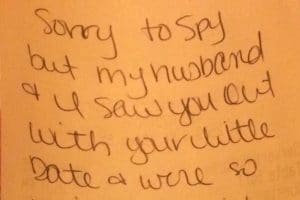 Sorry to spy
but my husband
& I saw you out
with your little
Date & were so